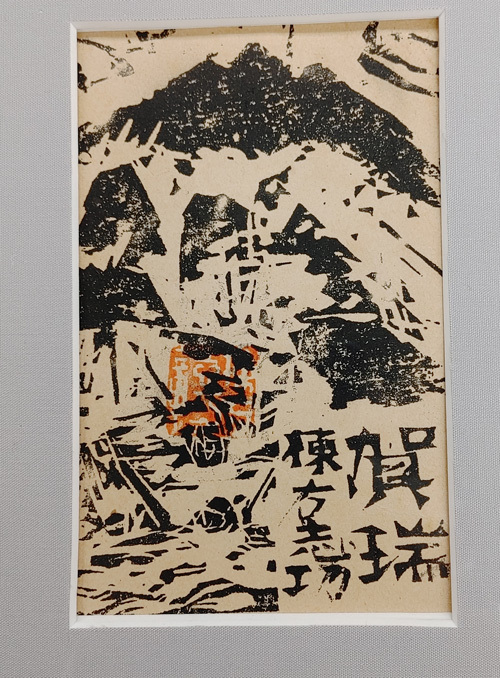 賀瑞
棟方志功